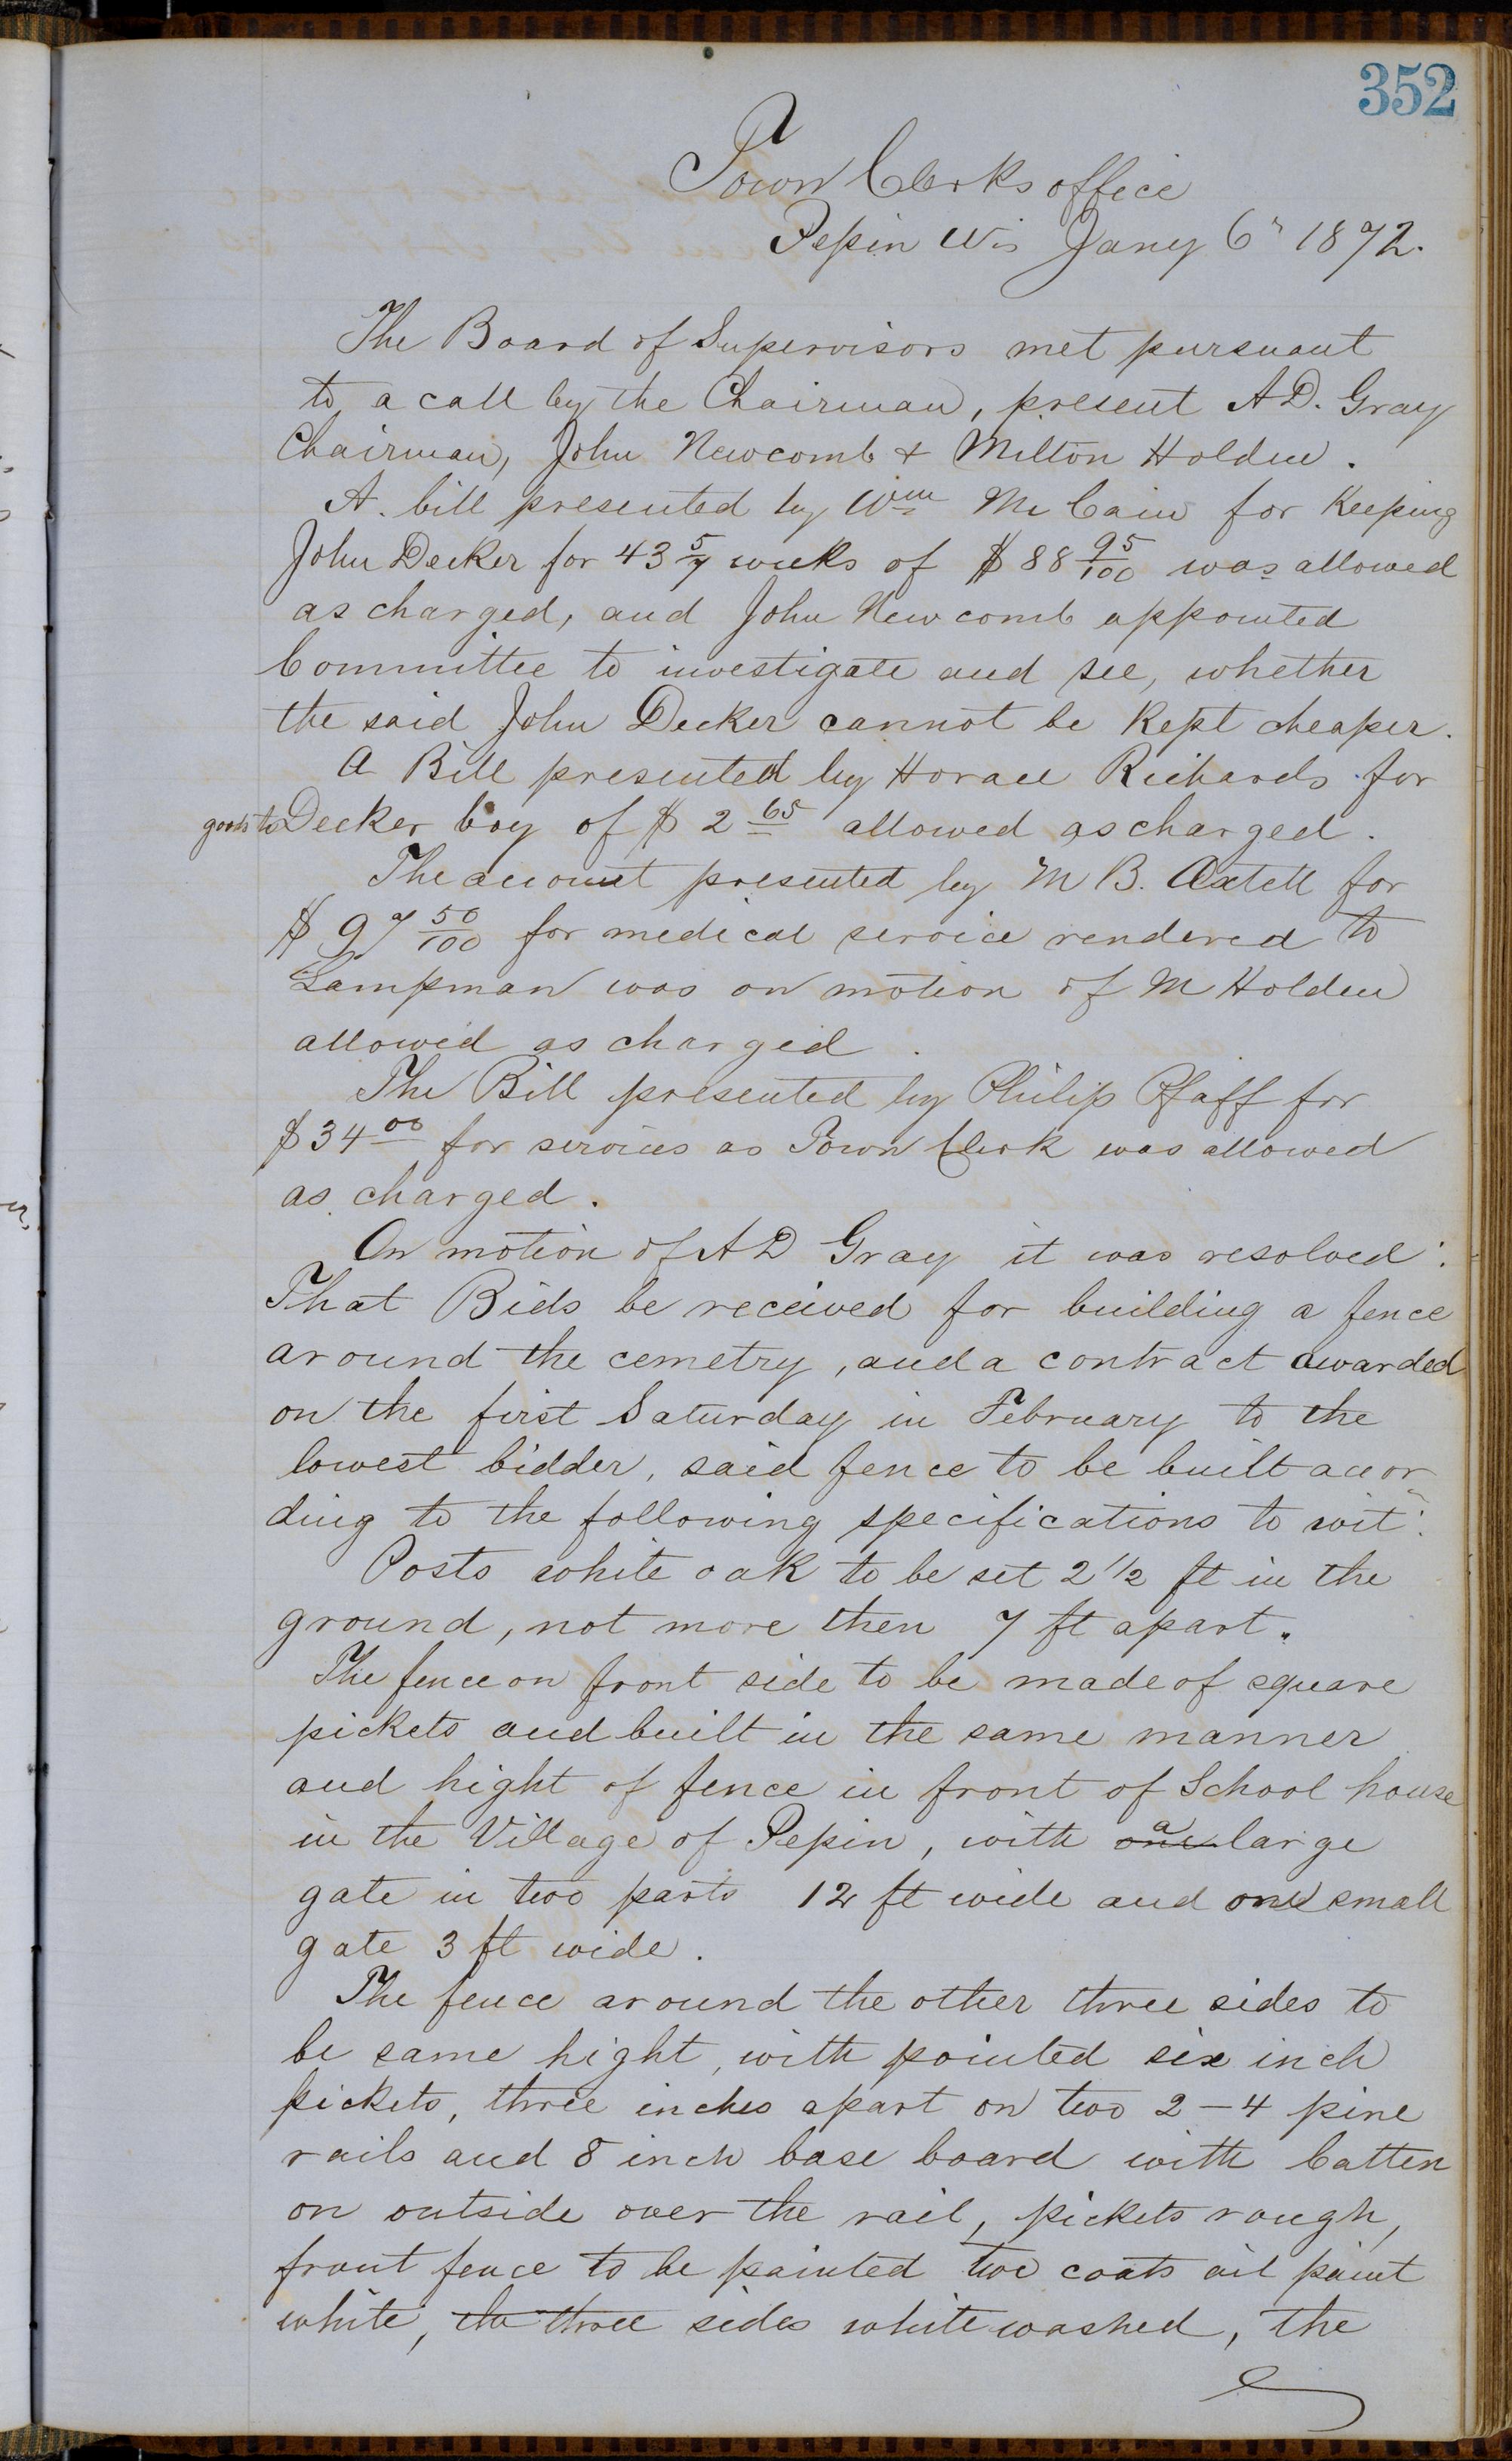 352
Town Clerks office
Pepin Wis Jany 6" 1872.
The Board of Supervisors met pursuant
to a call by the Chairman, present A D. Gray
Chairman, John Newcomb & Milton Holden.
A. bill presented by Wm Mc Cain for Keeping
John Decker for 43 5/7 weeks of $ 88 95/100 was allowed
as charged, and John Newcomb appointed
Committee to investigate and see, whether
the said John Decker cannot be Kept cheaper.
A Bill presented by Horace Richards for
goods to Decker boy of $ 2 65 allowed as charged.
The account presented by M B. Axtell for
$ 97 50/100 for medical service rendered to
Lampman was on motion of M Holden
allowed as charged.
The Bill presented by Philip Pfaff for
$ 34 00 for services as Town Clerk was allowed
as charged.
On motion of A D Gray it was resolved:
That Bids be received for building a fence
around the cemetry, and a contract awarded
on the first Saturday in February to the
lowest bidder, said fence to be built accor-
ding to the following specifications to wit:
Posts white oak to be set 2 1/2 ft in the
ground, not more then 7 ft apart.
The fence on front side to be made of square
pickets and built in the same manner
and hight of fence in front of School house
in the Village of Pepin, with one a large
gate in two parts 12 ft wide and one small
gate 3 ft wide.
The fence around the other three sides to
be same hight, with pointed six inch
pickets, three inches apart on two 2-4 pine
rails and 8 inch base board with batten
on outside over the rail, pickets rough,
front fence to be painted two coats oil paint
white, the three sides white washed, the